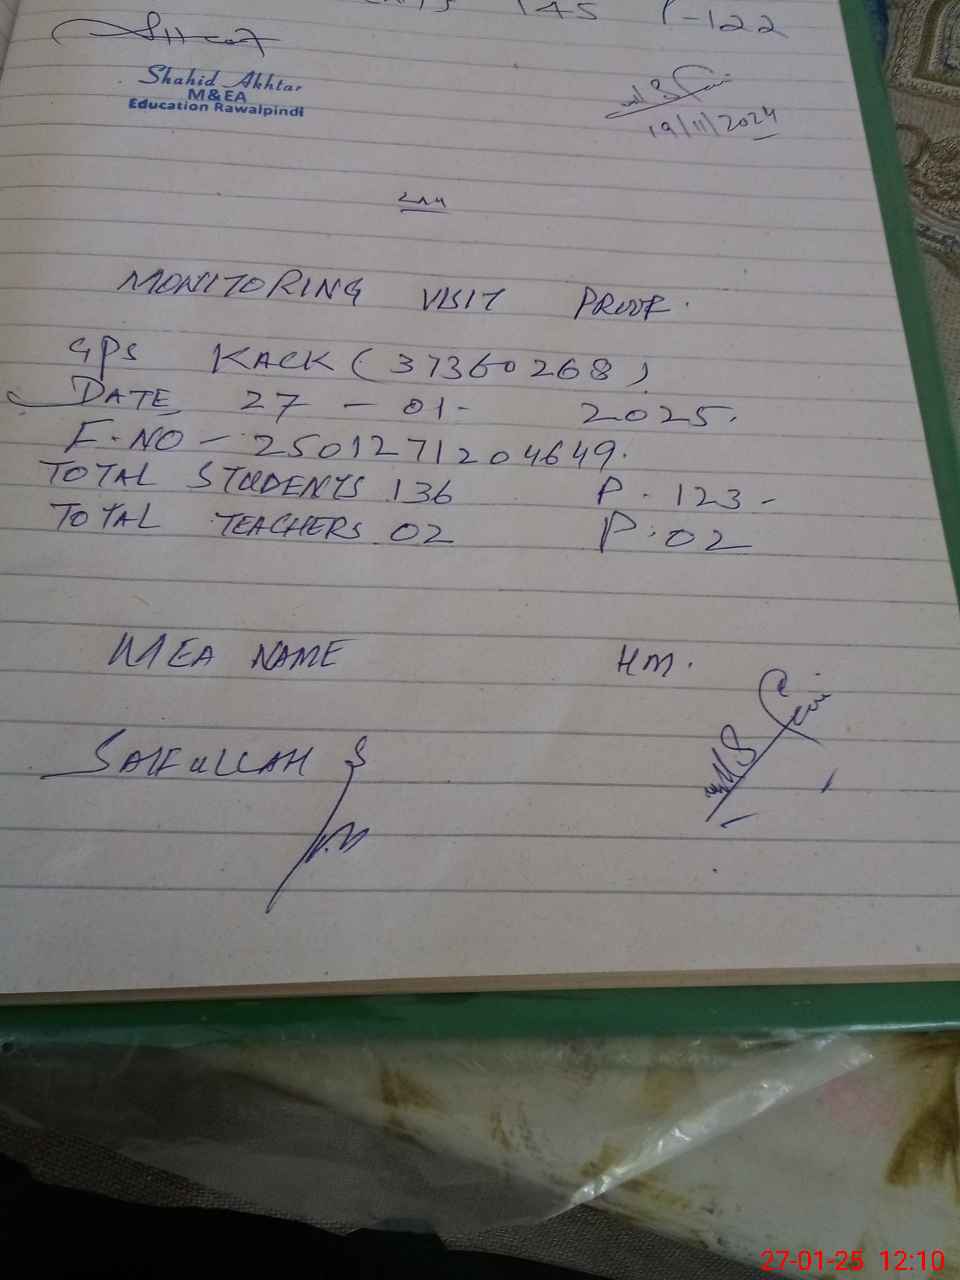 145 P-122
Shahid Akhtar
M&EA
Education Rawalpindi
19/11/2024
MONITORING VISIT PROOF.
GPS KACK (37360268)
DATE 27 - 01 - 2025.
F.NO - 2501271204649.
TOTAL STUDENTS 136 P. 123 -
TOTAL TEACHERS 02 P. 02
MEA NAME HM.
SAIFULLAH
27-01-25 12:10